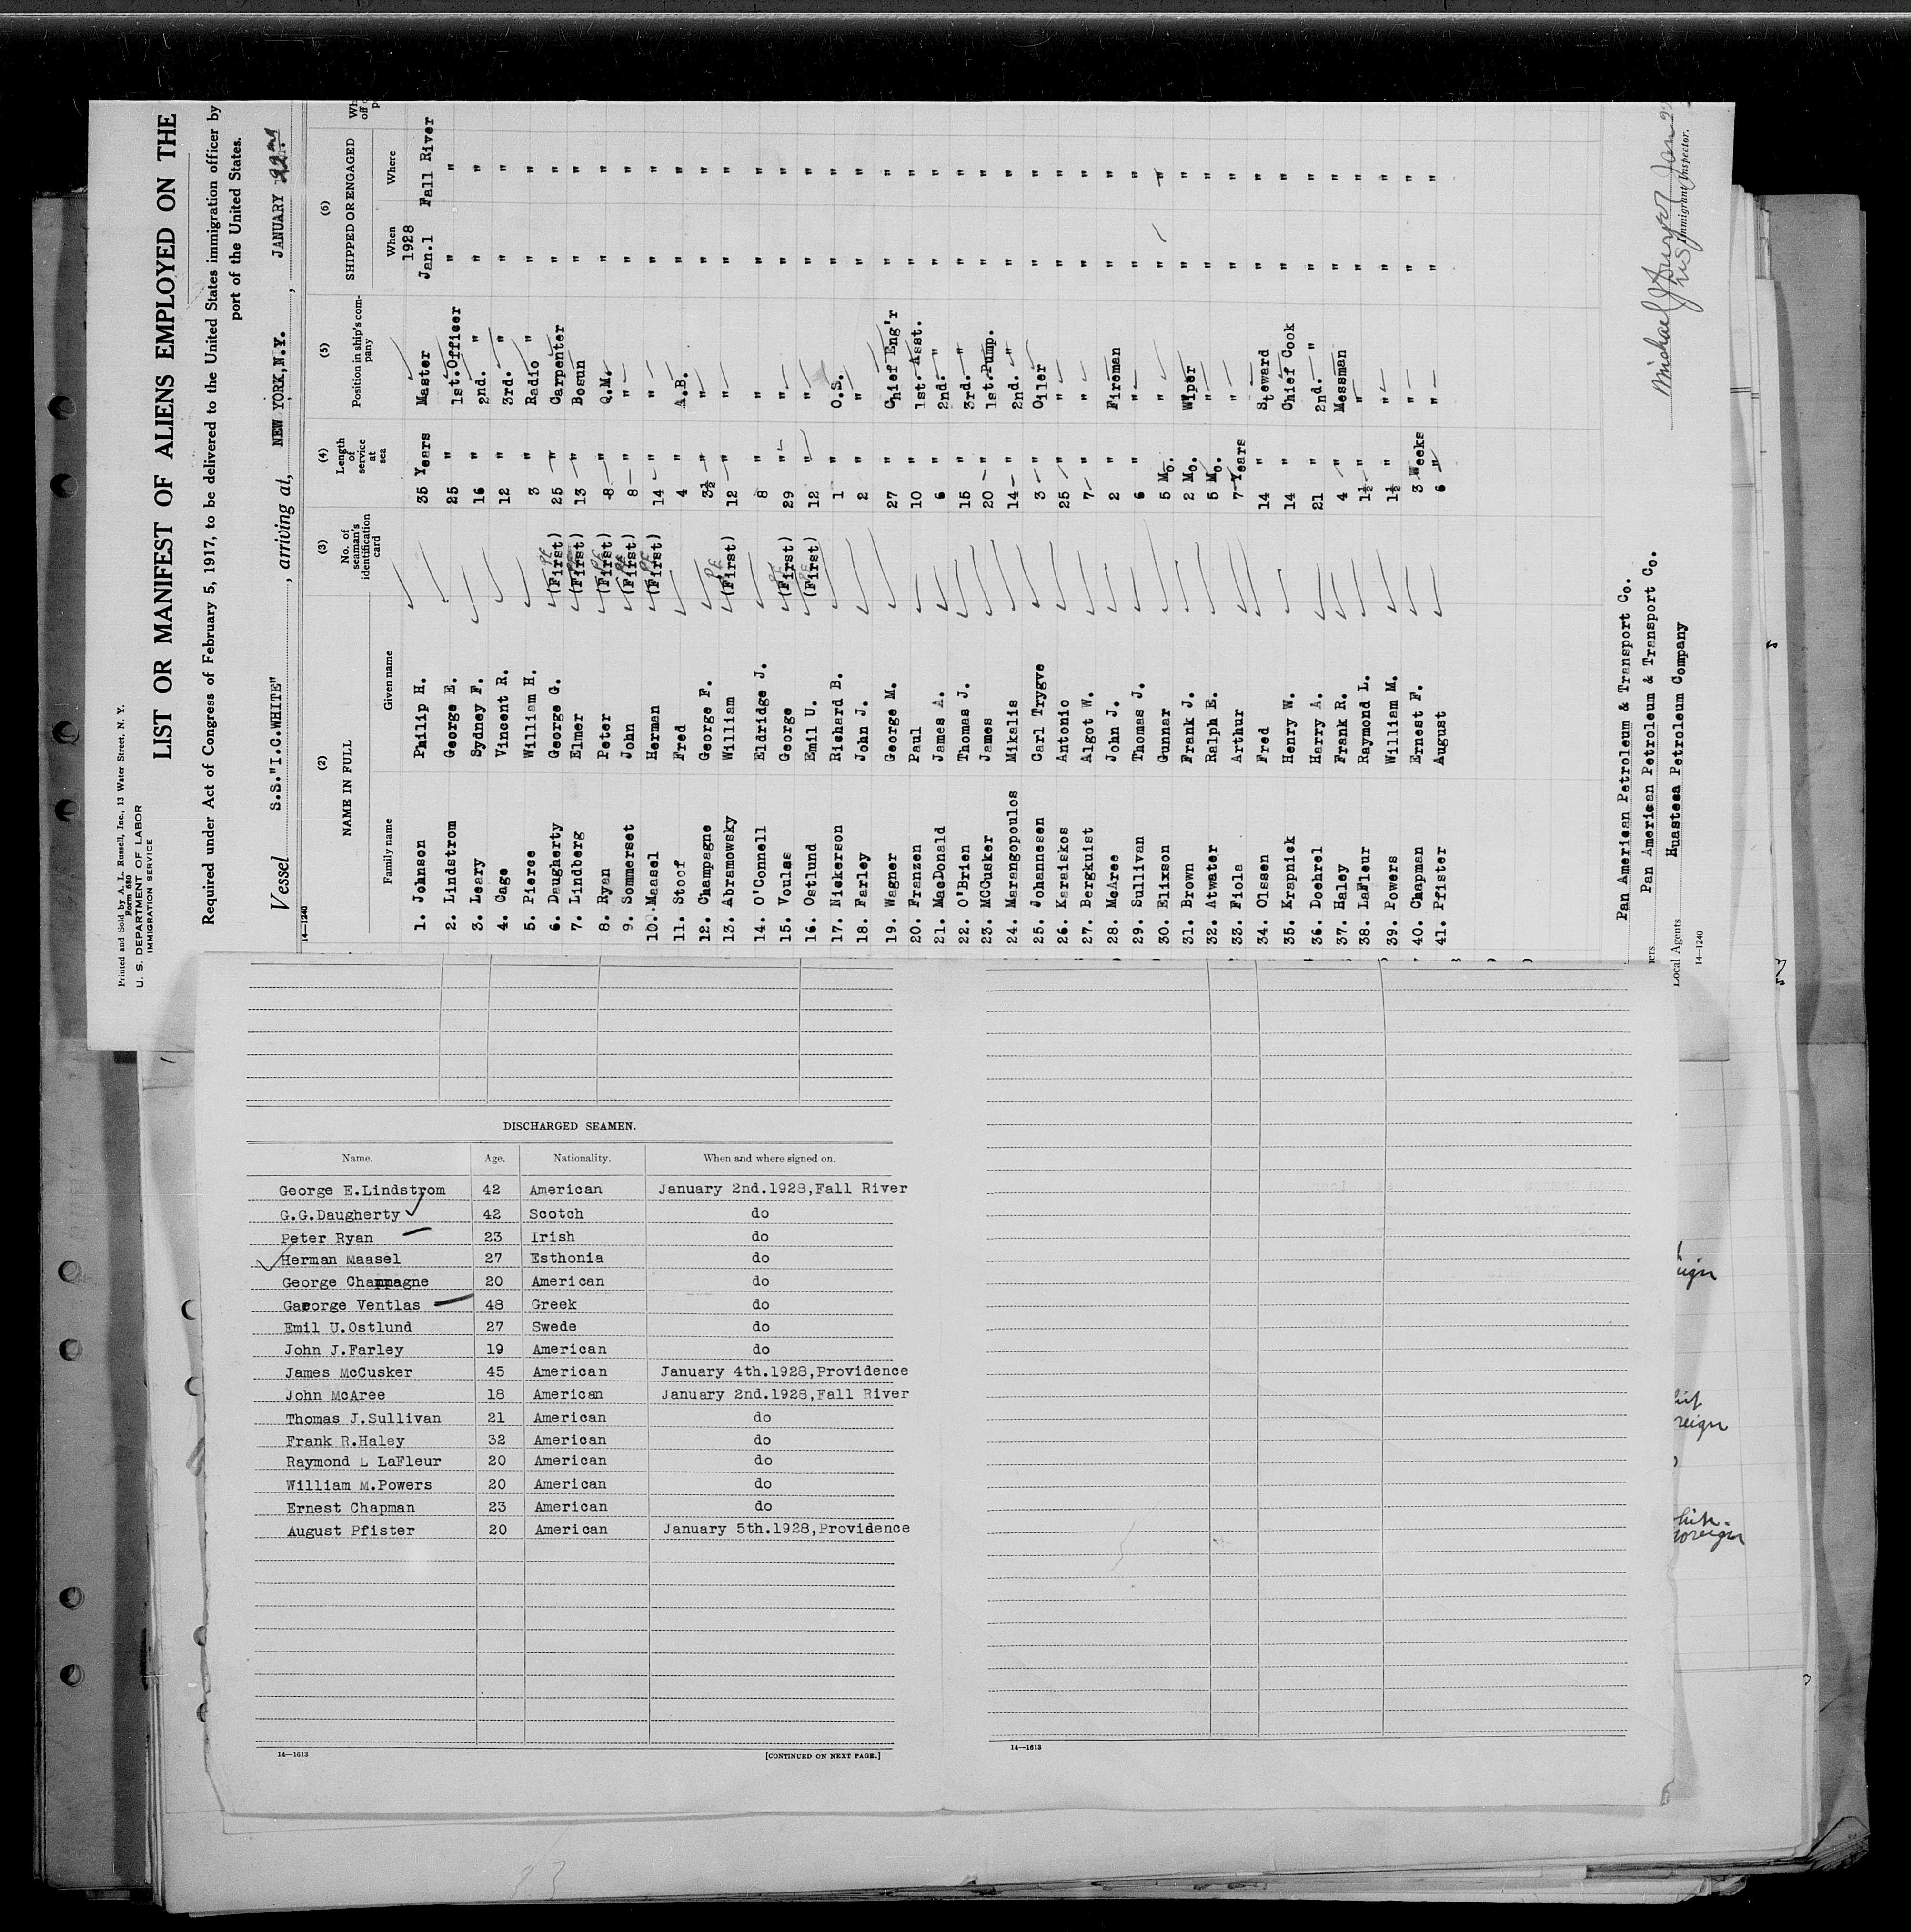 Printed and Sold by A. L. Russell, Inc., 13 Water Street, N. Y.
Form 680
U. S. DEPARTMENT OF LABOR
IMMIGRATION SERVICE
LIST OR MANIFEST OF ALIENS EMPLOYED ON THE
Required under Act of Congress of February 5, 1917, to be delivered to the United States immigration officer by
port of the United States.
Vessel S.S."I.C.WHITE", arriving at, NEW YORK,N.Y., JANUARY 22nd
14—1240
(2) (3) (4) (5) (6)
NAME IN FULL No. of seaman's identification card Length of service at sea Position in ship's company SHIPPED OR ENGAGED
Family name Given name When Where
1928
1. Johnson Philip H. 35 Years Master Jan.1 Fall River
2. Lindstrom George E. 25 " 1st.Officer " "
3. Leary Sydney F. 16 " 2nd. " " "
4. Gage Vincent R. 12 " 3rd. " " "
5. Pierce William H. 3 " Radio " " "
6. Daugherty George G. (First) 25 " Carpenter " "
7. Lindberg Elmer (First) 13 " Bosun " "
8. Ryan Peter (First) 8 " Q.M. " "
9. Sommerset John (First) 8 " " " "
10. Maasel Herman (First) 14 " " " "
11. Stoof Fred 4 " A.B. " "
12. Champagne George F. 3½ " " " "
13. Abramowsky William (First) 12 " " " "
14. O'Connell Eldridge J. 8 " " " "
15. Voulas George (First) 29 " " " "
16. Ostlund Emil U. (First) 12 " " " "
17. Nickerson Richard B. 1 " O.S. " "
18. Farley John J. 2 " " " "
19. Wagner George M. 27 " Chief Eng'r " "
20. Franzen Paul 10 " 1st. Asst. " "
21. MacDonald James A. 6 " 2nd. " " "
22. O'Brien Thomas J. 15 " 3rd. " " "
23. MCCusker James 20 " 1st.Pump. " "
24. Marangopoulos Mikalis 14 " 2nd. " " "
25. Johannesen Carl Trygve 3 " Oiler " "
26. Karaiskos Antonio 25 " " " "
27. Bergkuist Algot W. 7 " " " "
28. McAree John J. 2 " Fireman " "
29. Sullivan Thomas J. 6 " " " "
30. Elixson Gunnar 5 Mo. " " "
31. Brown Frank J. 2 Mo. Wiper " "
32. Atwater Ralph E. 5 Mo. " " "
33. Fiola Arthur 7 Years " " "
34. Olssen Fred 14 " Steward " "
35. Krapnick Henry W. 14 " Chief Cook " "
36. Doehrel Harry A. 21 " 2nd. " " "
37. Haley Frank R. 4 " Messman " "
38. LaFleur Raymond L. 1½ " " " "
39. Powers William M. 1½ " " " "
40. Chapman Ernest F. 3 Weeks " " "
41. Pfister August 6 " " " "
Pan American Petroleum & Transport Co.
Pan American Petroleum & Transport Co.
Local Agents Huasteca Petroleum Company
14—1240
Immigrant Inspector.
DISCHARGED SEAMEN.
Name. Age. Nationality. When and where signed on.
George E.Lindstrom 42 American January 2nd.1928,Fall River
G.G.Daugherty 42 Scotch do
Peter Ryan 23 Irish do
Herman Maasel 27 Esthonia do
George Champagne 20 American do
George Ventlas 48 Greek do
Emil U.Ostlund 27 Swede do
John J.Farley 19 American do
James McCusker 45 American January 4th.1928,Providence
John McAree 18 American January 2nd.1928,Fall River
Thomas J.Sullivan 21 American do
Frank R.Haley 32 American do
Raymond L LaFleur 20 American do
William M.Powers 20 American do
Ernest Chapman 23 American do
August Pfister 20 American January 5th.1928,Providence
14—1613 [CONTINUED ON NEXT PAGE.]
14—1613